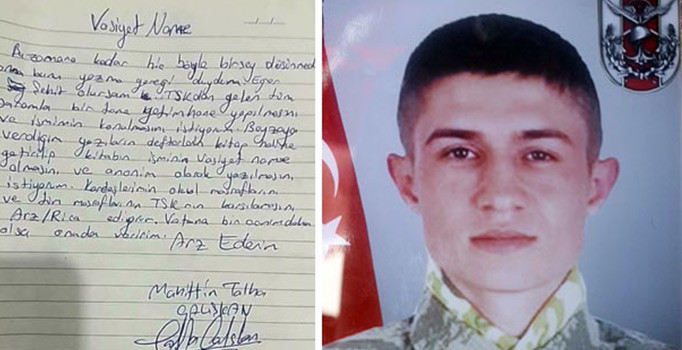 Vasiyet Name
Bu zamana kadar hiç böyle birşey düşünmedim
ama bunu yazma gereği duydum. Eğer
Şehit olursam TSK'dan gelen tüm
paramla bir tane yatimhane yapılmasını
ve ismimin konulmasını istiyorum.
verdiğim yazıların defterdeki kitap haline
getirilip kitabın isminin Vasiyet name
olmasını ve anonim olarak yazılmasını
istiyorum. Kardeşlerimin okul masraflarını
ve tüm masraflarını TSK'nın karşılamasını
Arz/Rica ediyorum. Vatana bin canım
olsa onuda veririm. Arz Ederim
Talha
ÇALIŞKAN